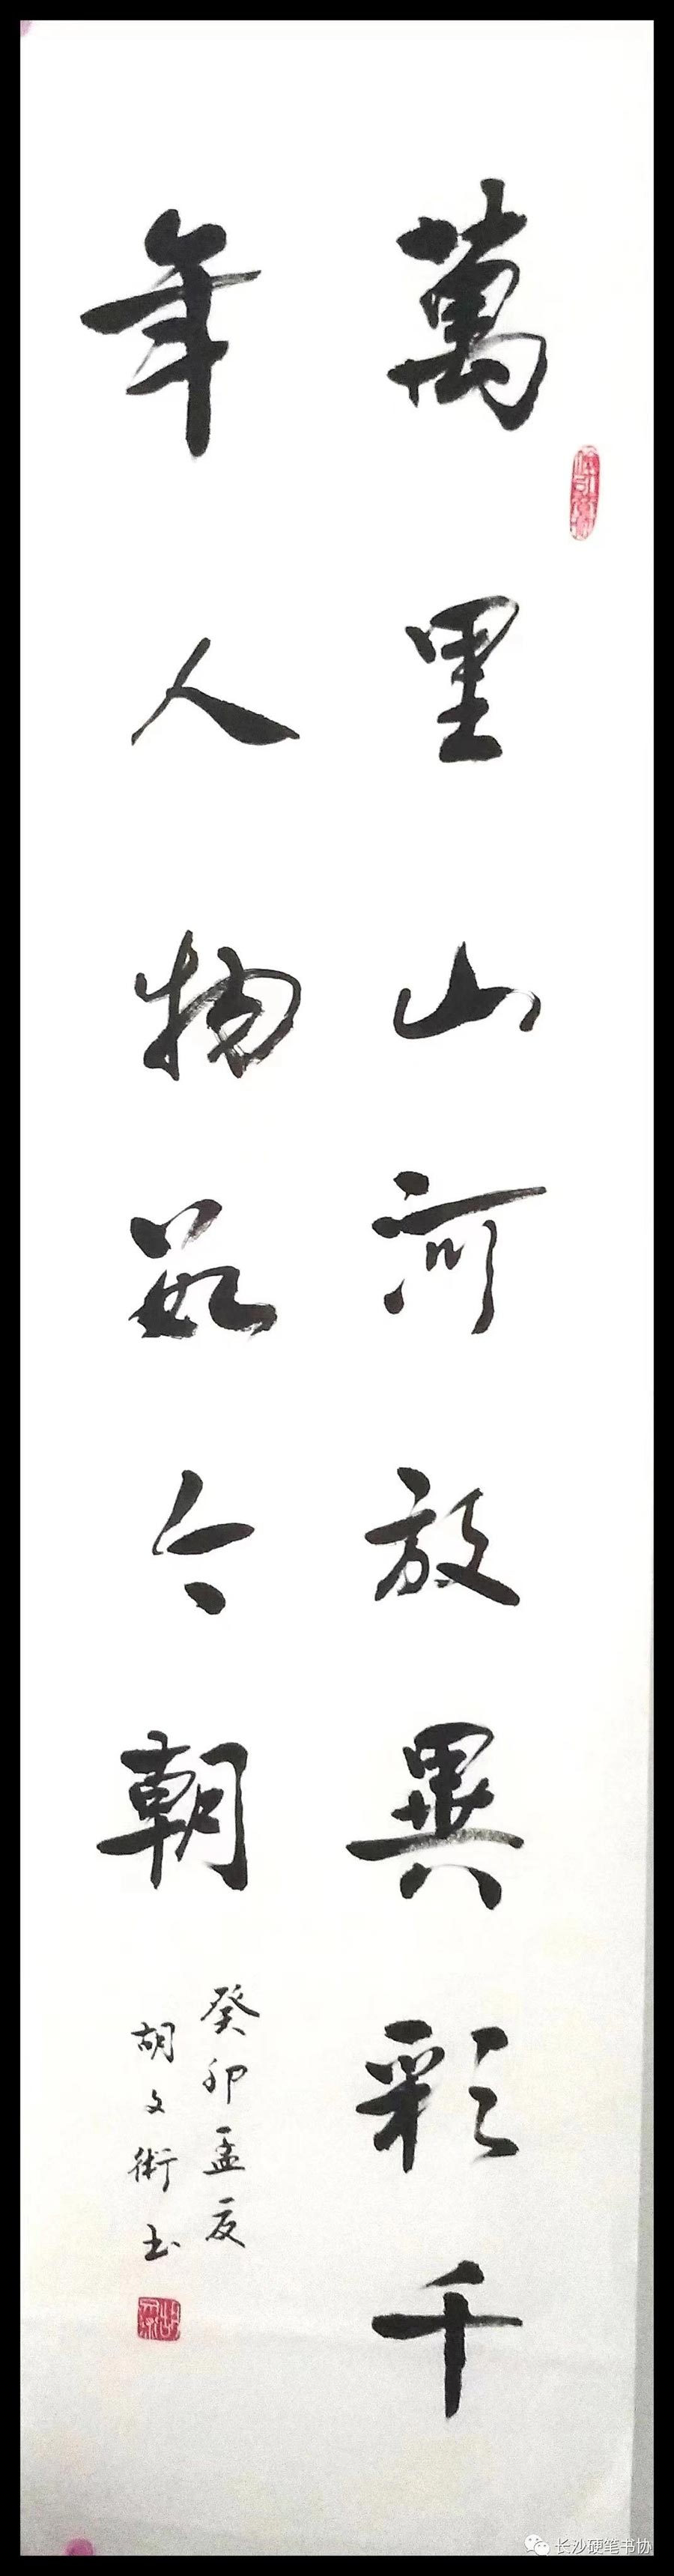 萬里山河放異彩千
年人物數今朝
癸卯孟夏
胡文術书
长沙硬笔书协